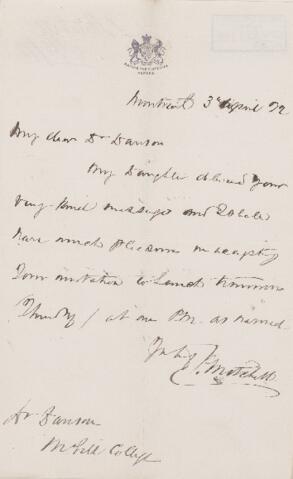 Montreal 3d April 72
My dear Dr Dawson
My Daughter delivered your
very kind message and I shall
have much pleasure in accepting
Your invitation to Lunch tomorrow
(Thursday) at one P.M. as named.
P. Mitchell
Dr Dawson
McGill College